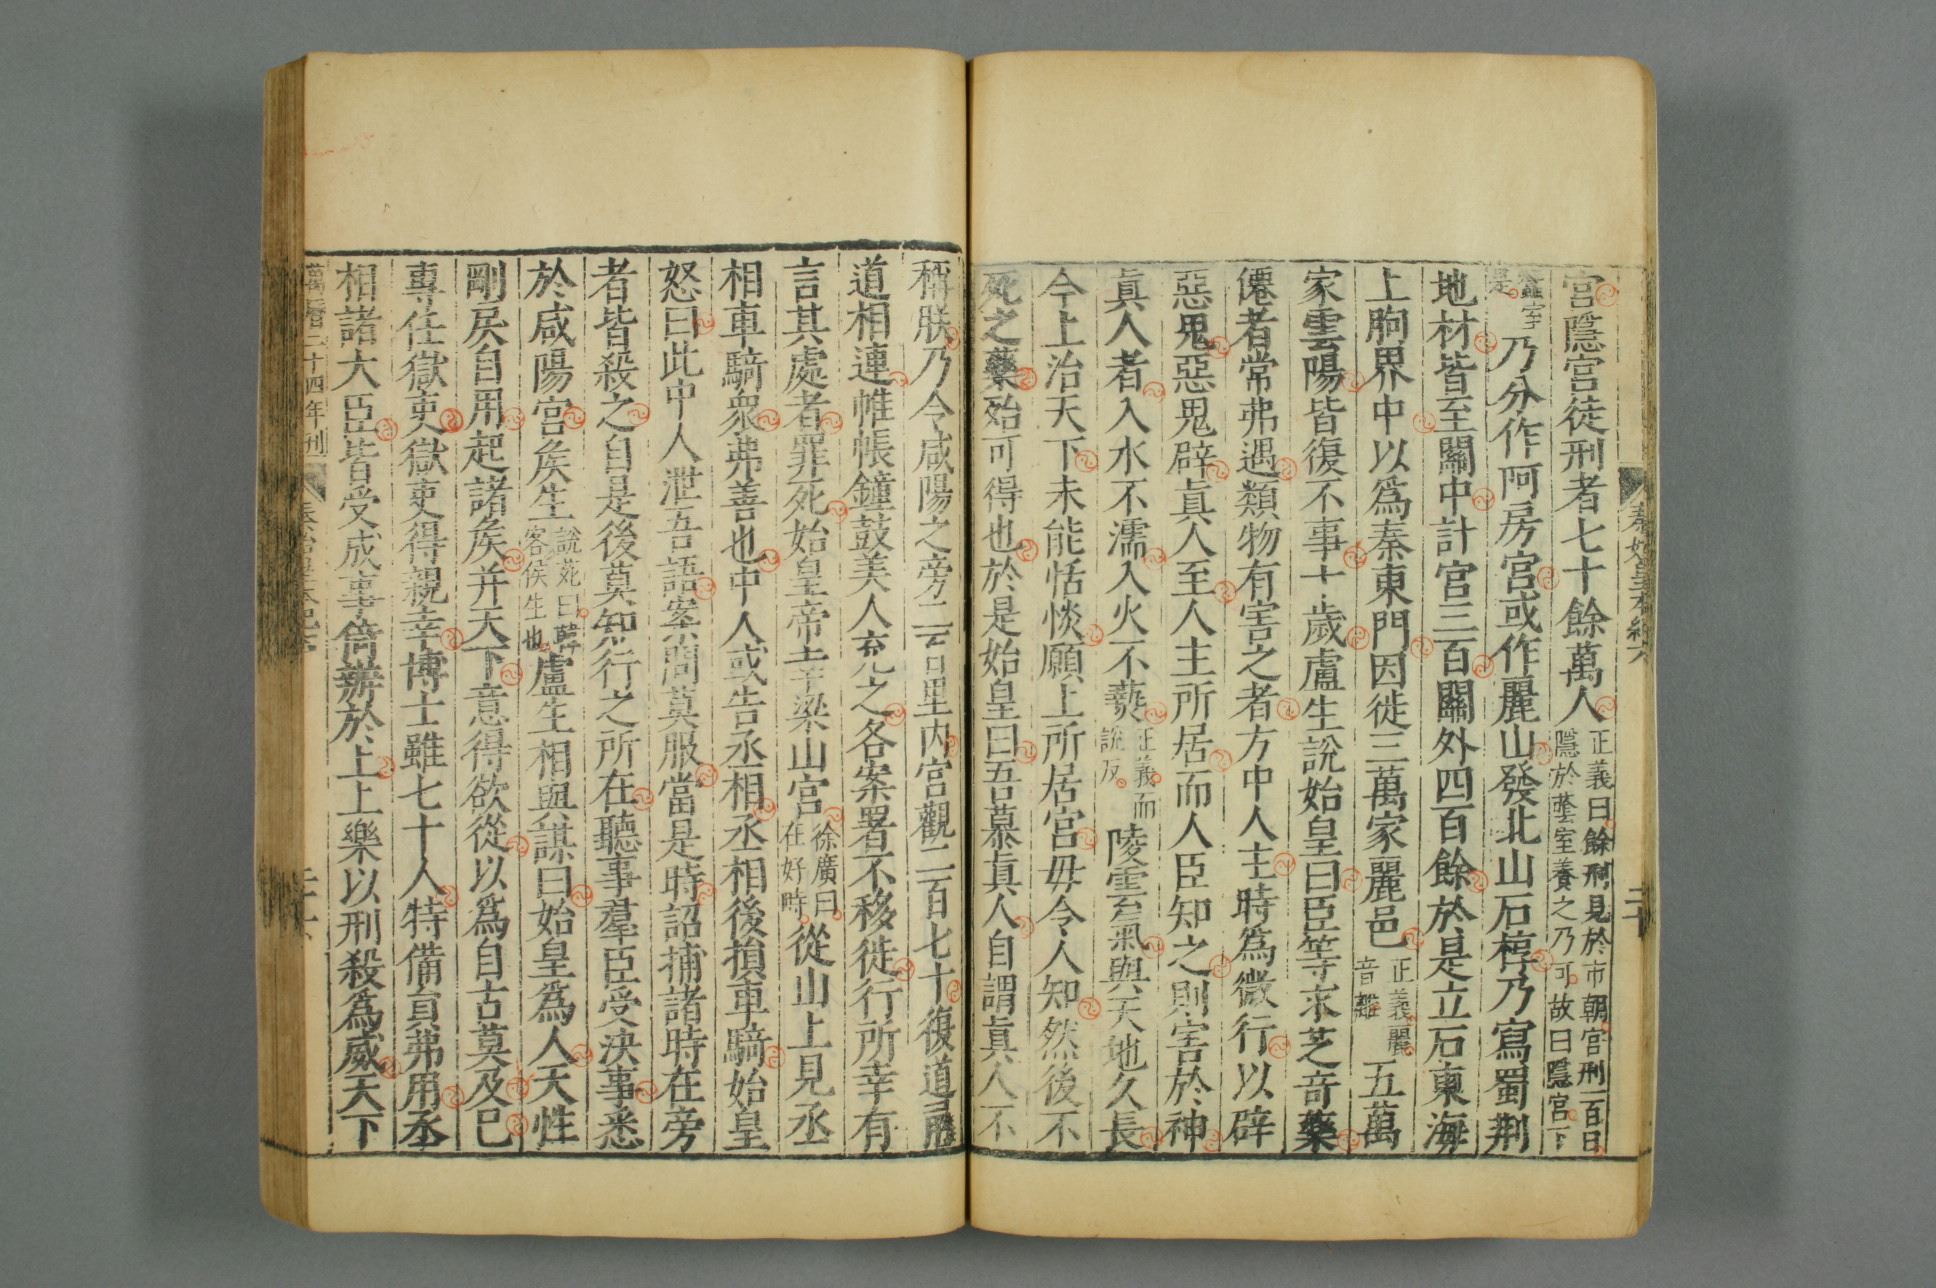 宮隱宮徒刑者七十餘萬人正義曰餘刑見於市朝宮刑一百日隱於蔭室養之乃可故曰隱宮下
蠶室是乃分作阿房宮或作麗山發北山石椁乃寫蜀荆
地材皆至關中計宮三百關外四百餘於是立石東海
上朐界中以爲秦東門因徙三萬家麗邑正義麗音離五萬
家雲陽皆復不事十歲盧生說始皇曰臣等求芝奇藥
僊者常弗遇類物有害之者方中人主時爲微行以辟
惡鬼惡鬼辟眞人至人主所居而人臣知之則害於神
眞人者入水不濡入火不爇正義而說反陵雲氣與天地久長
今上治天下未能恬惔願上所居宮毋令人知然後不
死之藥殆可得也於是始皇曰吾慕眞人自謂眞人不
秦始皇本紀六
二十
稱朕乃令咸陽之旁二百里内宮觀二百七十復道甬
道相連帷帳鐘鼓美人充之各案署不移徙行所幸有
言其處者罪死始皇帝幸梁山宮徐廣曰在好畤從山上見丞
相車騎衆弗善也中人或告丞相丞相後損車騎始皇
怒曰此中人泄吾語案問莫服當是時詔捕諸時在旁
者皆殺之自是後莫知行之所在聽事羣臣受決事悉
於咸陽宮矦生說苑曰韓客侯生也盧生相與謀曰始皇爲人天性
剛戾自用起諸矦并天下意得欲從以爲自古莫及已
專任獄吏獄吏得親幸博士雖七十人特備員弗用丞
相諸大臣皆受成事倚辨於上上樂以刑殺爲威天下
萬曆二十四年刊
秦始皇本紀六